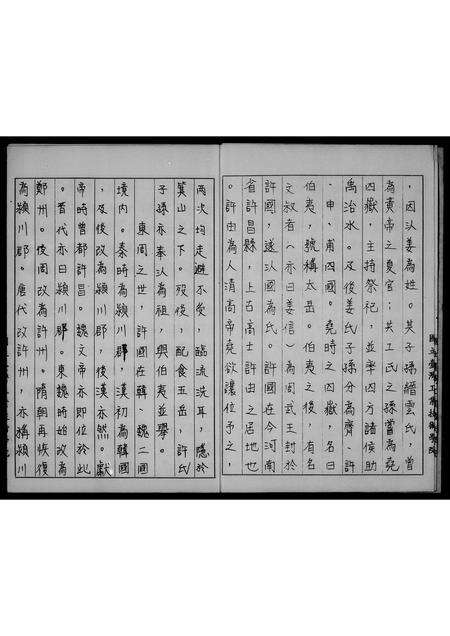 ，因以姜為姓。其子孫縉雲氏，曾
為黃帝之夏官；共工氏之孫嘗為堯
四嶽，主持祭祀，並率四方諸侯助
禹治水。及後姜氏子孫分為齊、許
、申、甫四國。堯時之四嶽，名曰
伯夷，號稱太岳。伯夷之後，有名
文叔者（亦曰姜信）為周武王封於
許國，遂以國為氏。許國在今河南
省許昌縣，上古高士許由之居地也
。許由為人清高帝堯欲讓位予之，
兩次均走避不受，臨流洗耳，隱於
箕山之下。歿後，配食五岳，許氏
子孫亦奉以為祖，與伯夷並舉。
東周之世，許國在韓、魏二國
境內。秦時為潁川郡，漢初為韓國
，及後改為潁川郡，後漢亦然。獻
帝時曾都許昌。魏文帝亦即位於此
。晋代亦曰潁川郡。東魏時始改為
鄭州。後周改為許州。隋朝再恢復
為潁川郡。唐代改許州，亦稱潁川